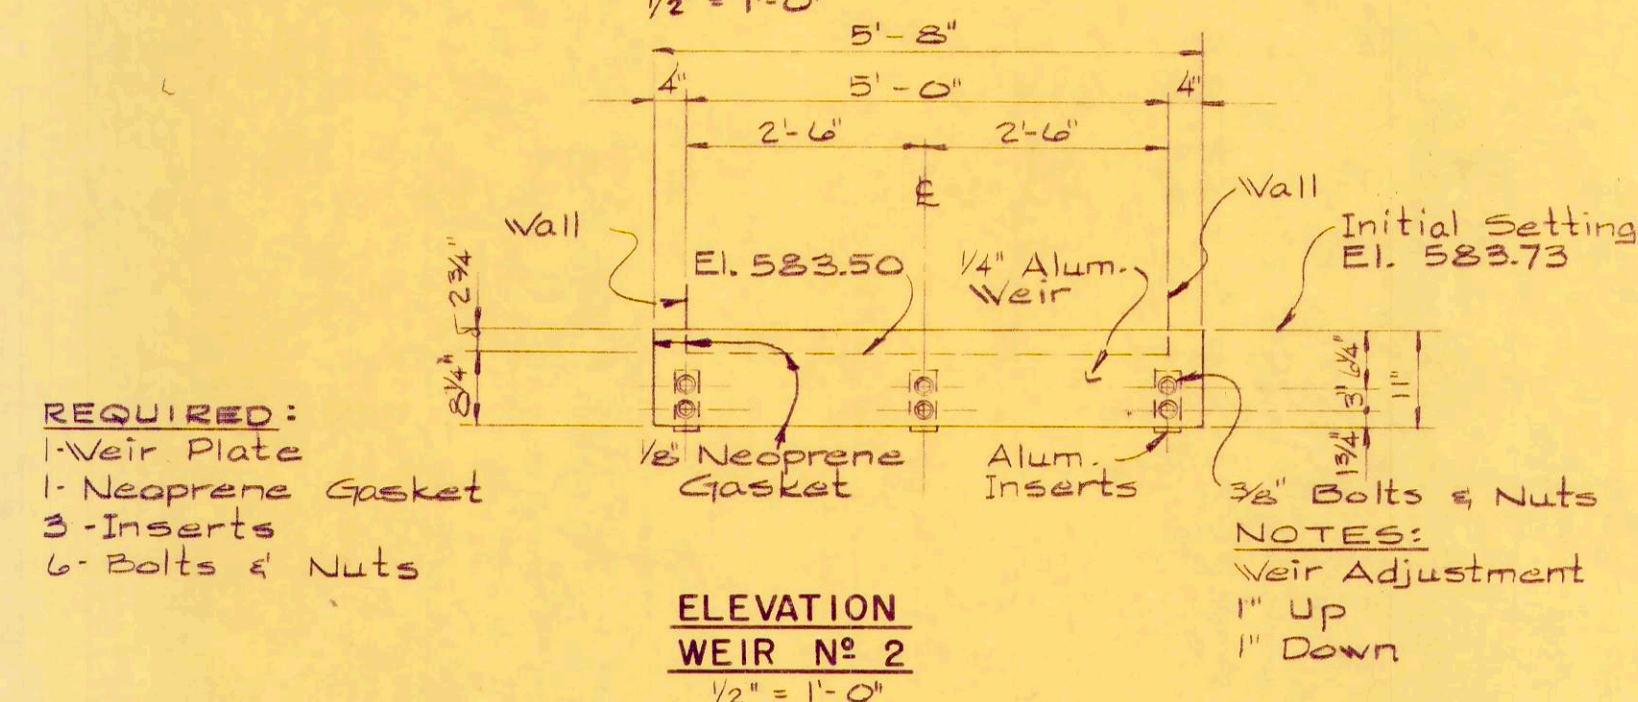 1/2" = 1'-0"
5'-8"
4" 5'-0" 4"
2'-6" 2'-6"
℄
Wall
Wall
Initial Setting
El. 583.73
El. 583.50
1/4" Alum.
Weir
2 3/4"
8 1/4"
6 1/4"
3"
11"
1 3/4"
REQUIRED:
1-Weir Plate
1- Neoprene Gasket
3 -Inserts
6- Bolts & Nuts
1/8" Neoprene
Gasket
Alum.
Inserts
3/8" Bolts & Nuts
NOTES:
Weir Adjustment
1" Up
1" Down
ELEVATION
WEIR Nº 2
1/2" = 1'-0"